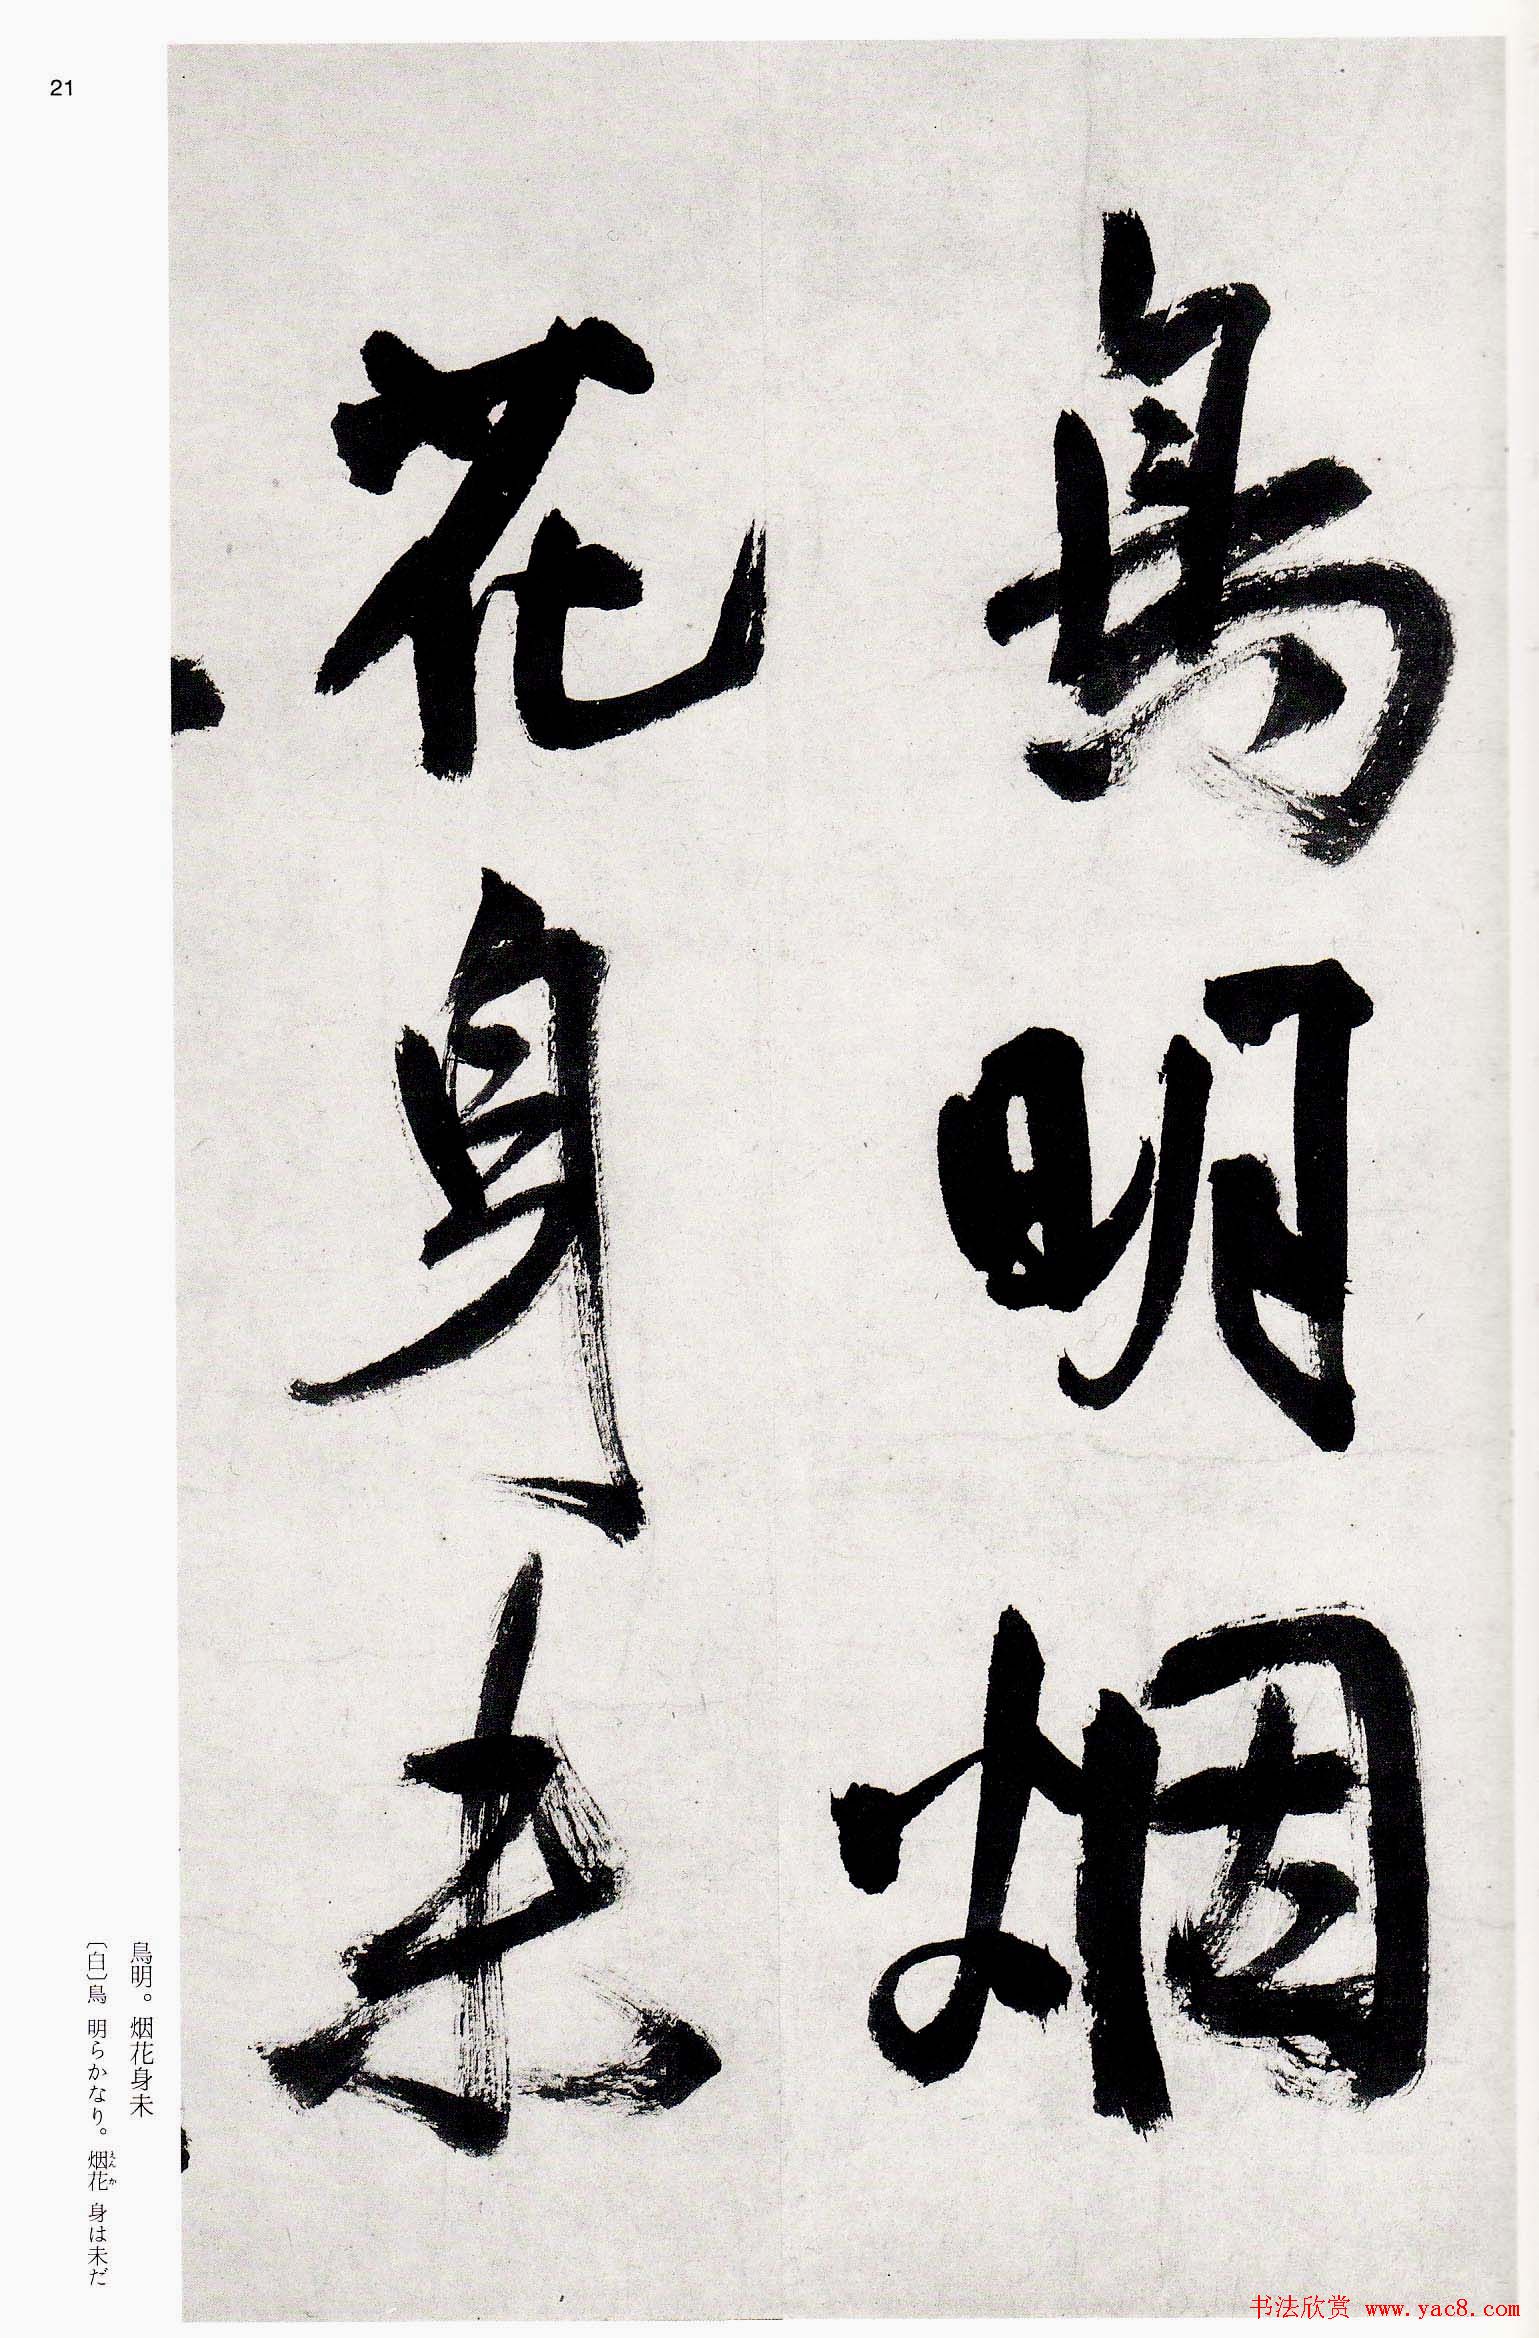 21
鳥明烟
花身未
鳥明。烟花身未
〔白〕鳥 明らかなり。烟花 身は未だ
えんか
书法欣赏 www.yac8.com